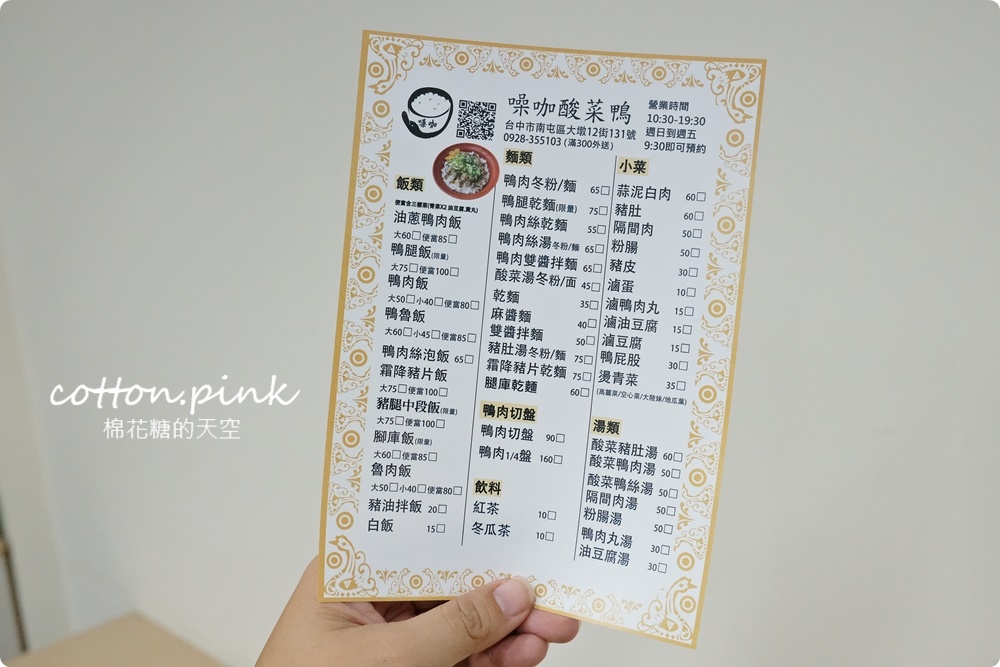 噪咖
噪咖酸菜鴨
台中市南屯區大墩12街131號
0928-355103 (滿300外送)
營業時間
10:30-19:30
週日到週五
9:30即可預約
飯類
便當含三樣菜(青菜X2 油豆腐.貢丸)
油蔥鴨肉飯
大60□便當85□
鴨腿飯(限量)
大75□便當100□
鴨肉飯
大50□小40□便當80□
鴨魯飯
大60□小45□便當85□
鴨肉絲泡飯 65□
霜降豬片飯
大75□便當100□
豬腿中段飯(限量)
大75□便當100□
腳庫飯(限量)
大60□便當85□
魯肉飯
大50□小40□便當80□
豬油拌飯 20□
白飯 15□
麵類
鴨肉冬粉/麵 65□
鴨腿乾麵(限量) 75□
鴨肉絲乾麵 55□
鴨肉絲湯冬粉/麵 65□
鴨肉雙醬拌麵 65□
酸菜湯冬粉/面 45□
乾麵 35□
麻醬麵 40□
雙醬拌麵 50□
豬肚湯冬粉/麵 75□
霜降豬片乾麵 75□
腿庫乾麵 60□
鴨肉切盤
鴨肉切盤 90□
鴨肉1/4盤 160□
飲料
紅茶 10□
冬瓜茶 10□
小菜
蒜泥白肉 60□
豬肚 60□
隔間肉 50□
粉腸 50□
豬皮 30□
滷蛋 10□
滷鴨肉丸 15□
滷油豆腐 15□
滷豆腐 15□
鴨屁股 30□
燙青菜 35□
(高麗菜/空心菜/大陸妹/地瓜葉)
湯類
酸菜豬肚湯 60□
酸菜鴨肉湯 50□
酸菜鴨絲湯 50□
隔間肉湯 50□
粉腸湯 50□
鴨肉丸湯 30□
油豆腐湯 30□
cotton.pink
棉花糖的天空